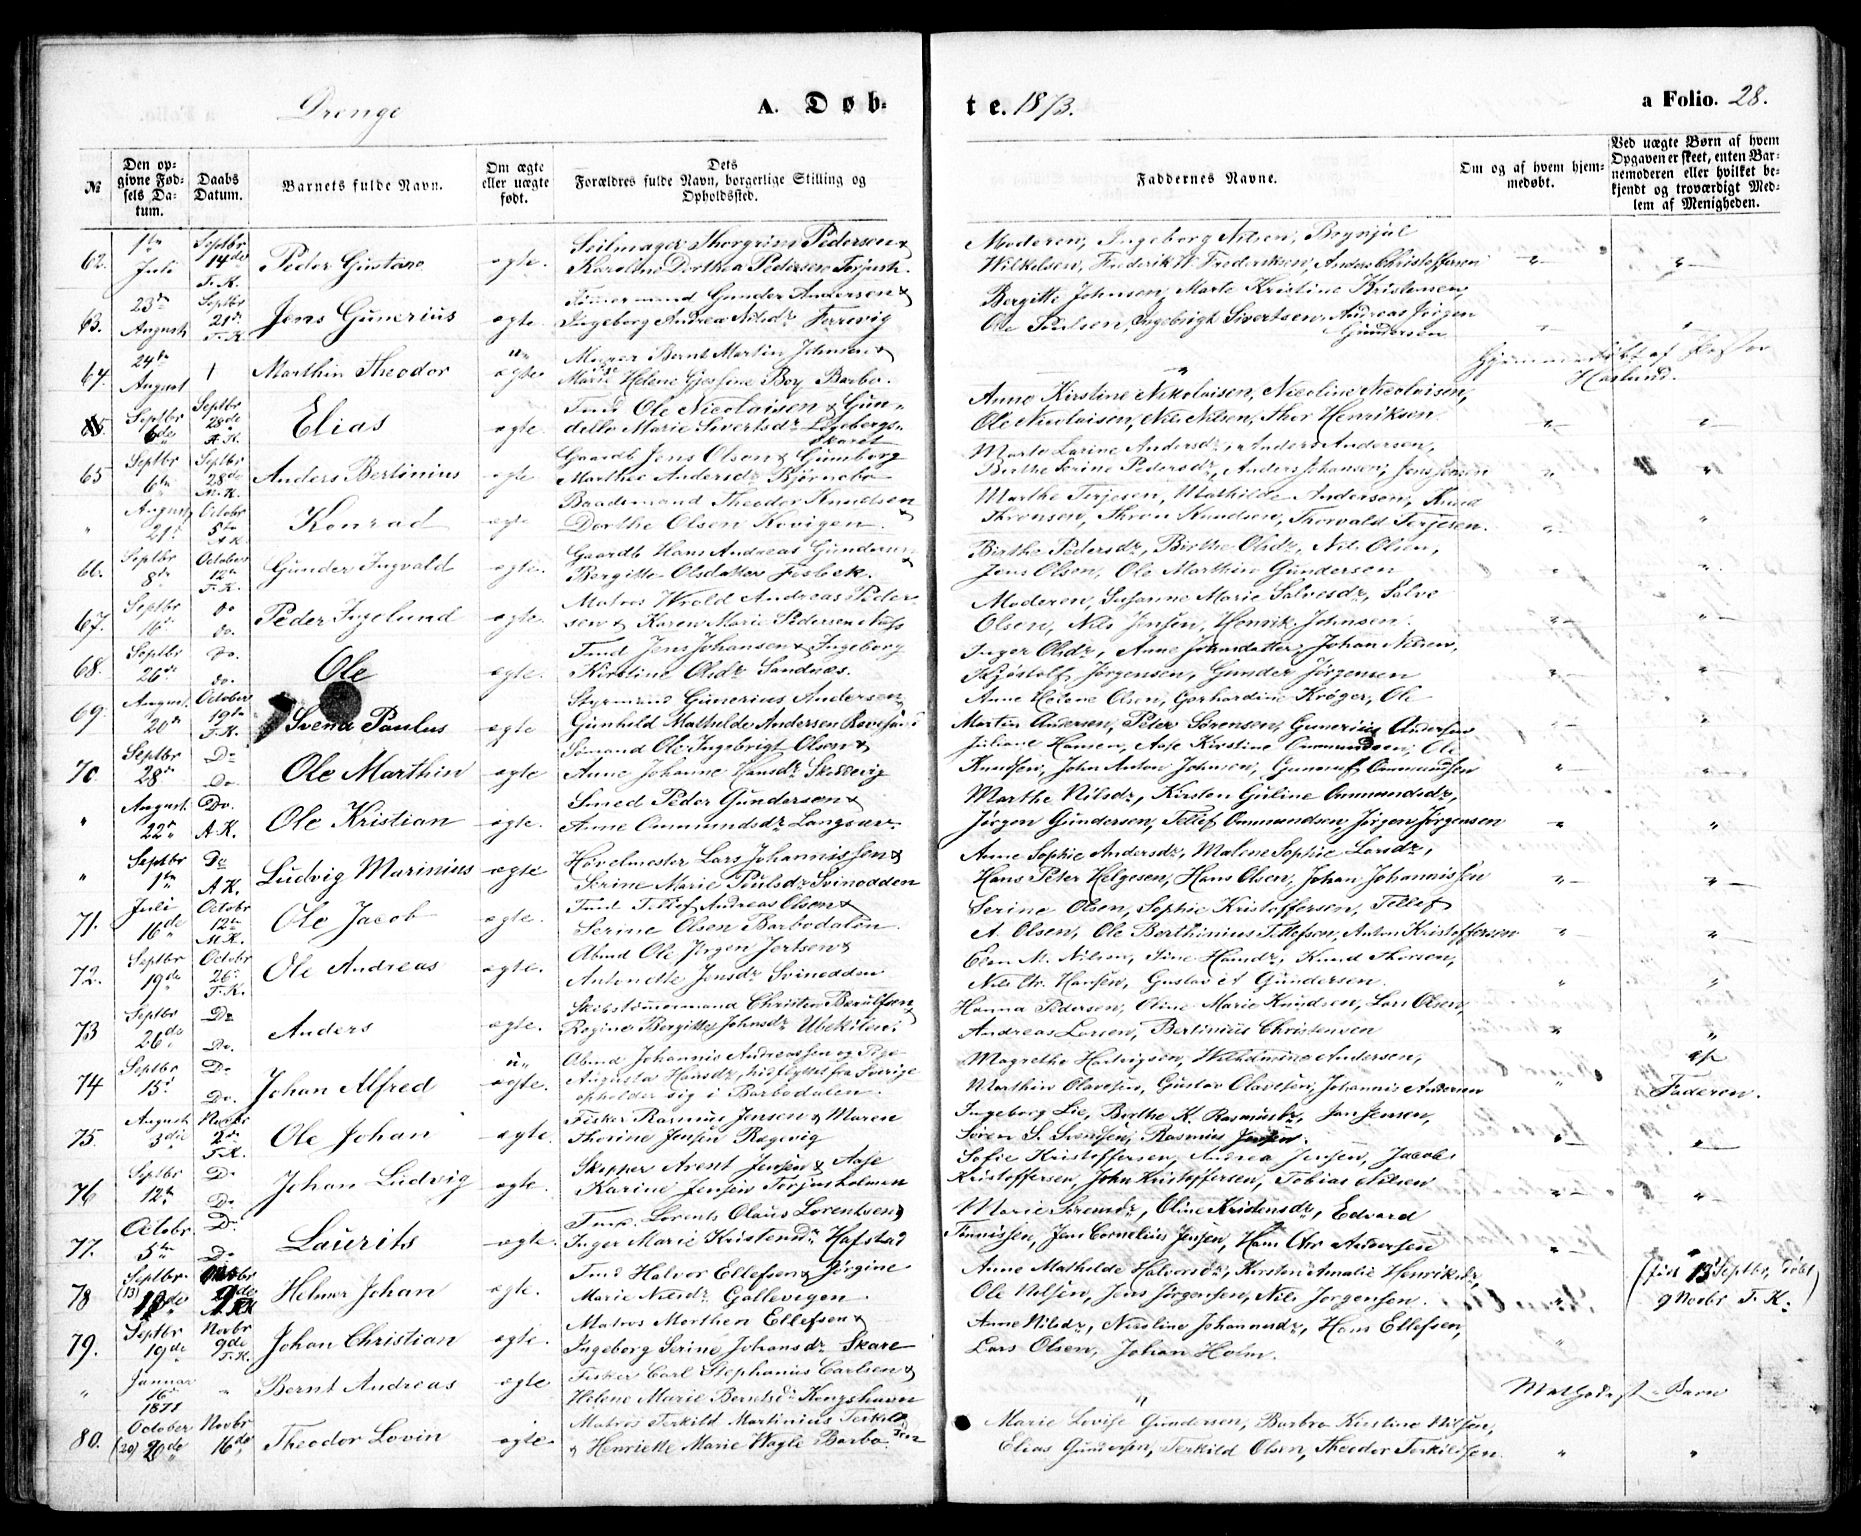 Drenge A. Døb- te. 1873. a Folio. 28.
№
Den opgivne Fødsels Datum.
Daabs Datum.
Barnets fulde Navn.
Om ægte eller uægte født.
Dets Forældres fulde Navn, borgerlige Stilling og Opholdssted.
Faddernes Navne.
Om og af hvem hjemmedøbt.
Ved uægte Børn af hvem Opgaven er skeet, enten Barnemoderen eller hvilket bekjendt og troværdigt Medlem af Menigheden.
1ste Septbr Seilmager Thorgrim Pedersen & Moderen, Ingeborg Nilsen,
62. Juli 14de Peder Gustav ægte. Karoline Dorthea Pedersen Frederik W. Frederiksen, Anders Christoffersen
F. K.
23de Septbr Tømermand Gunder Andersen & Bergitte Johnsen, Marte Kristine Kristensen,
63. August 21de Jens Gunerius ægte. Ingeborg Andrea Nilsdr Ole Poulsen, Ingebrigt Sivertsen, Andreas Jörgen
F. K. Gundersen
24de u- Murer Bernt Martin Johnsen & Hjemmedøbt af Pastor
64. August Marthin Theodor ægte Marie Helene Boy Barbo. Haslund.
Septbr Septbr Tmd Ole Nicolaisen & Gun- Anne Kirstine Nikolaisen, Nicoline Nicolaisen,
6de 28de Elias ægte. Marie Sivertsdr Ole Nicolaisen, Nils Nilsen, Thor Henriksen
A. K.
Septbr Septbr Gaardb Jens Olsen & Gunborg Marte Larine Andersdr, Anders Andersen,
65 6te 28de Anders Bertinius ægte Marthie Andersdr Bjørnebo Berthe Serine Pedersdr, Anders Johansen, Jens Jensen
August Octobr Baadsmand Theodor Knudsen & Marthe Terjesen, Mathilde Andersen, Knud
" 21de 5te Konrad ægte Dorthe Olsen Kovigen. Thronsen, Thron Knudsen, Thorvald Terjesen.
Septbr October Gaardb Hans Andreas Gundersen & Birthe Pedersdr, Birthe Olsdr, Nils Olsen,
66. 8de 12te Gunder Ingvald ægte. Bergitte Olsdatter Fisbek. Jens Olsen, Ole Marthin Gundersen
F. K.
Septbr do Matros Wrold Andreas Peder- Moderen, Susanne Marie Salvesdr, Salve
67. 16de do. Peder Ingelund ægte. sen & Karen Marie Pedersen Olsen, Nils Jensen, Henrik Johnsen.
Septbr Do. Tmd Jens Johansen & Ingeborg Inger Olsdr, Anne Johnsdatter, Johan Nilsen,
68. 26de do. Ole ægte. Kirstine Olsdr Sandnæs. Jörgensen, Gunder Jörgensen
August October Styrmand Gunerius Andersen Anne Helene Olsen, Gerhardine Krøger, Ole
69 20de 19de Svend Paulus ægte Gunhild Mathilde Andersen Martin Andersen, Peter Sörensen, Gunerius Andersen
F. K.
Septbr Do Sömand Ole Ingebrigt Olsen & Juliane Hansen, Aase Kirstine Ommundsen, Ole
70 28de Do. Ole Marthin ægte Anne Johanne Hansdr Knudsen, John Anton Johnsen, Gunnuf Ommundsen
August Do. Smed Peder Gundersen & Marthe Nilsdr, Kirsten Guline Ommundsdr,
" 22de A. K. Ole Kristian ægte. Anne Ommundsdr Langsæv Jörgen Gundersen, Tellef Ommundsen, Jörgen Jörgensen
Septbr Do Hövelmester Lars Johannissen & Anne Sophie Andersdr, Malene Sophie Larsdr,
" 1ste A. K. Ludvig Marinius ægte Serine Marie Poulsdr Svinodden Hans Peter Helgesen, Hans Olsen, Johan Johannissen
Juli Octobr Tmd Tellef Andreas Olsen & Serine Olsen, Sophie Kristoffersen, Tellef
71. 16de 12te Ole Jacob ægte. Serine Olsen Barbodalen. A. Olsen, Ole Berthinius Tellefsen, Anton Kristoffersen
M. K.
Septbr Octobr Abmd Ole Jörgen Jortsen & Elen M. Nilsen, Sine Hansdr, Knud Thorsen,
72. 19de 26de Ole Andreas ægte. Antonette Jensdr Svinodden Nils Chr. Hansen, Gustav A Gundersen.
F. K.
Septbr Do Skibstömmermand Christen Berulfsen & Hanna Pedersen, Oline Marie Knudsen, Lars Olsen,
73 26de Do. Anders ægte. Regine Bergitte Johnsdr Ubekilen. Andreas Larsen, Bertinius Christensen
Septbr Do u- Abmd Johannis Andreassen og Pige Magrethe Hartvigsen, Wilhelmine Andersen, af
74 15de Do. Johan Alfred ægte. Augusta Hansdr, hidflyttet fra Sverige Marthin Olavesen, Gustav Olavesen, Johannis Andersen Faderen.
opholder sig i Barbodalen.
August Novbr Fisker Rasmus Jensen & Maren Ingeborg Lie, Birthe K. Rasmusdr, Jan Jensen,
75. 3die 2de Ole Johan ægte. Thorine Jensen Rægevig Sören S. Svendsen, Rasmus Jensen.
F. K.
Septbr Do Skipper Arent Jensen & Aase Sofie Kristoffersen, Andrea Jensen, Jacob
76 12te Do Johan Ludvig ægte. Karine Jensen Torjusholmen Kristoffersen, John Kristoffersen, Tobias Nilsen
Octobr Do. Tmd. Lorents Olaus Lorentsen & Marie Sörensdr, Oline Kristensdr, Edvard
77. 5te Do Laurits ægte. Inger Marie Kristensdr Hafstad Tönnissen, Jens Cornelius Jensen, Hans Chr Andersen
Septbr. Novbr Tmd Halvor Ellefsen & Jörgine Anne Mathilde Halvorsdr, Kirsten Amalie Henriksdr (født 13 Septbr, döbt
78 (13) 13de 9de Helmer Johan ægte. Marie Nilsdr Gallevigen Ole Nilsen, Jens Jörgensen, Nils Jörgensen. 9 Novbr F. K.)
Septbr Novbr Matros Morthen Ellefsen & Anne Nilsdr, Nicoline Johannesdr, Hans Ellefsen,
79. 19de 9de Johan Christian ægte. Ingeborg Serine Johansdr Skare Lars Olsen, Johan Holm.
F. K.
Januar Fisker Carl Stephanus Carlsen &
" 16de " Bernt Andreas ægte Helene Marie Berntsdr Kongshavn " Methodist-Barn
1871
October Novbr Matros Terkild Martinius Terkild- Marie Lovise Gundersen, Barbro Kirstine Nilsen,
80. (20) 20de 16de Theodor Lovin ægte. sen & Henriette Marie Wagle Barbo Elias Gundersen, Terkild Olsen, Theodor Terkildsen